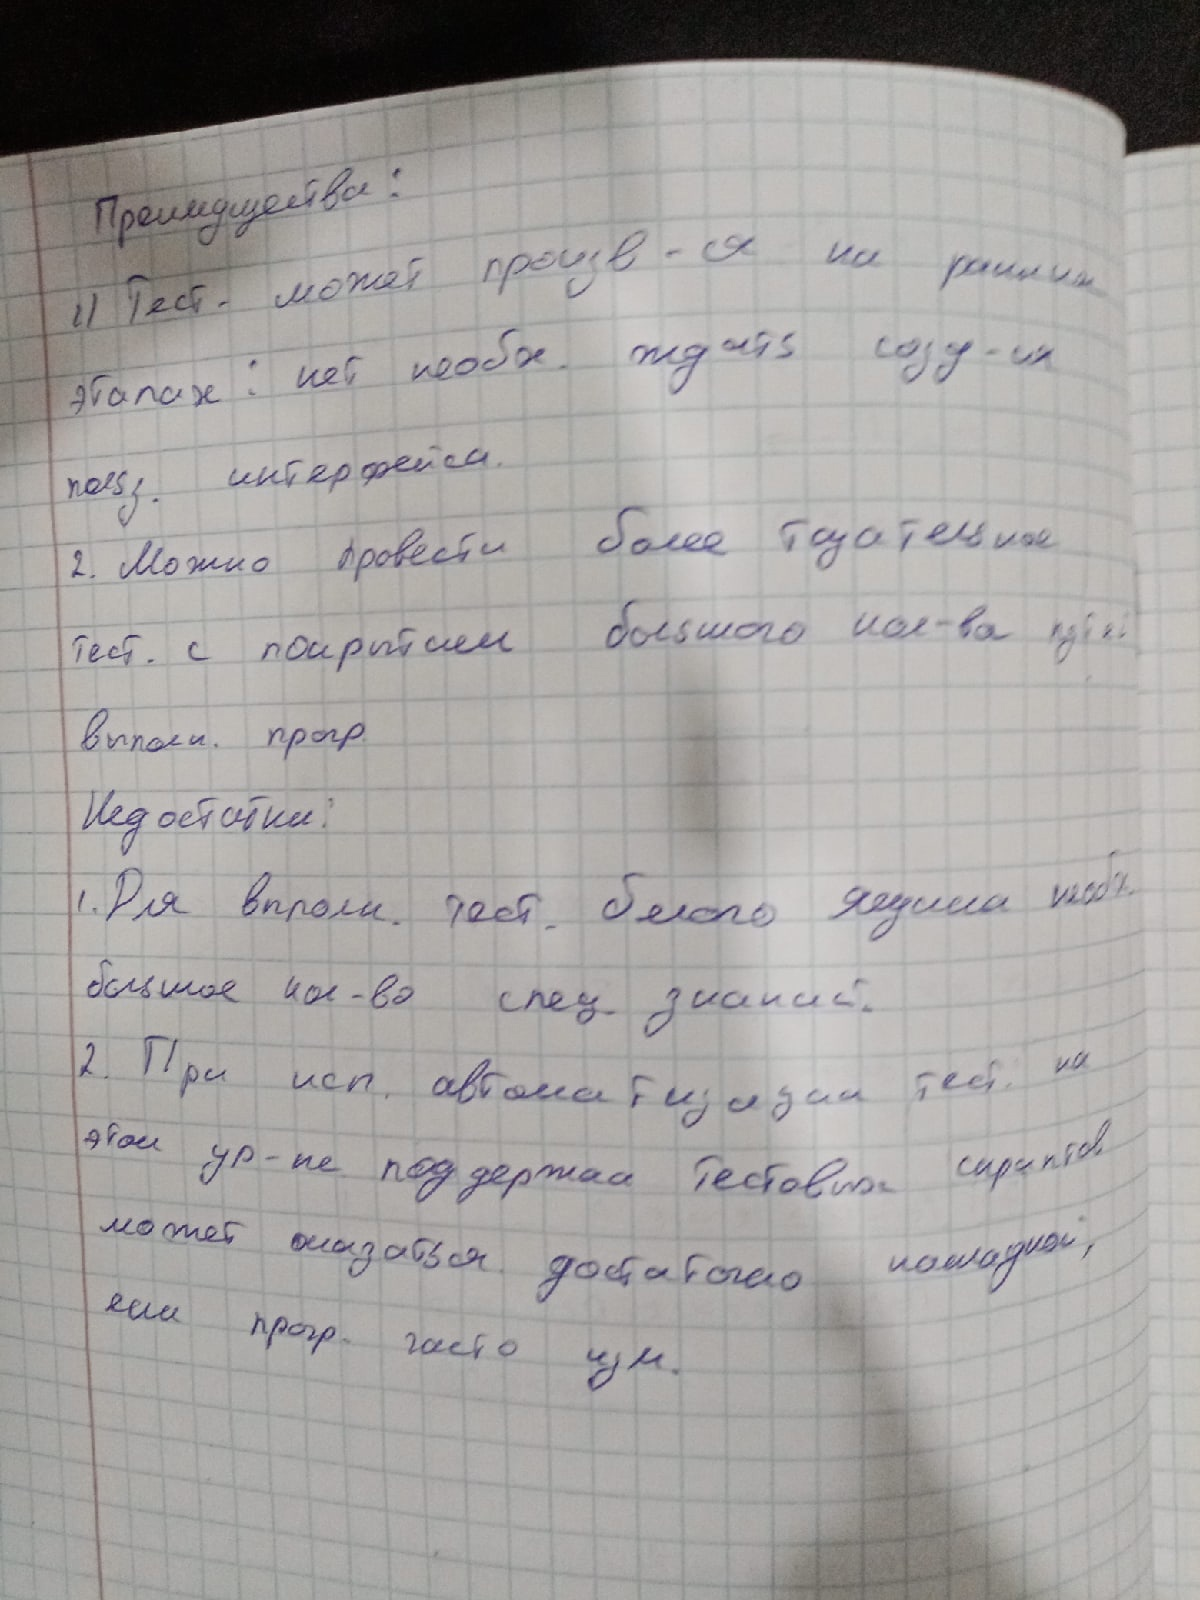 Преимущества:
1) Тест. может произв-ся на ранних
этапах: нет необх. ждать созд-ия
польз. интерфейса.
2. Можно провести более тщательное
тест. с покрытием большого кол-ва
выполн. прогр.
Недостатки:
1. Для вполн. тест. белого ящика необх.
большое кол-во спец. знаний.
2. При исп. автоматизации тест. на
этом ур-не поддержка тестовых скриптов
может оказаться достаточно накладной,
если прогр. часто изм.